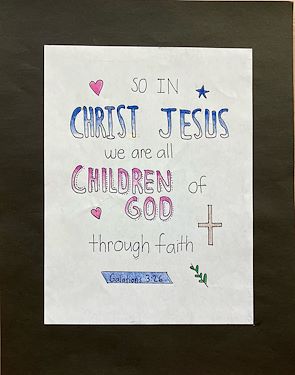 SO IN
CHRIST JESUS
we are all
CHILDREN of
GOD
through faith
Galations 3:26